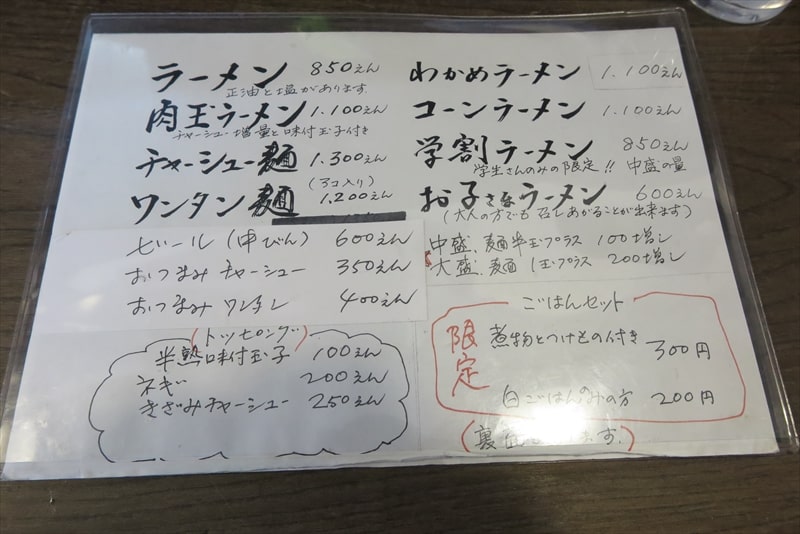 ラーメン 850えん
正油と塩があります
肉玉ラーメン 1.100えん
チャーシュー増量と味付玉子付き
チャーシュー麺 1.300えん
ワンタン麺 1.200えん
ビール(中びん) 600えん
おつまみチャーシュー 350えん
おつまみワンタン 400えん
(トッピング)
半熟味付玉子 100えん
ネギ 200えん
きざみチャーシュー 250えん
わかめラーメン 1.100えん
コーンラーメン 1.100えん
学割ラーメン 850えん
学生さんのみの限定!! 中盛の量
お子さまラーメン 600えん
(大人の方でも召しあがることが出来ます)
中盛.麺半玉プラス 100増し
大盛.麺 1玉プラス 200増し
ごはんセット
限定
煮物とつけもの付き 300円
白ごはんのみの方 200円